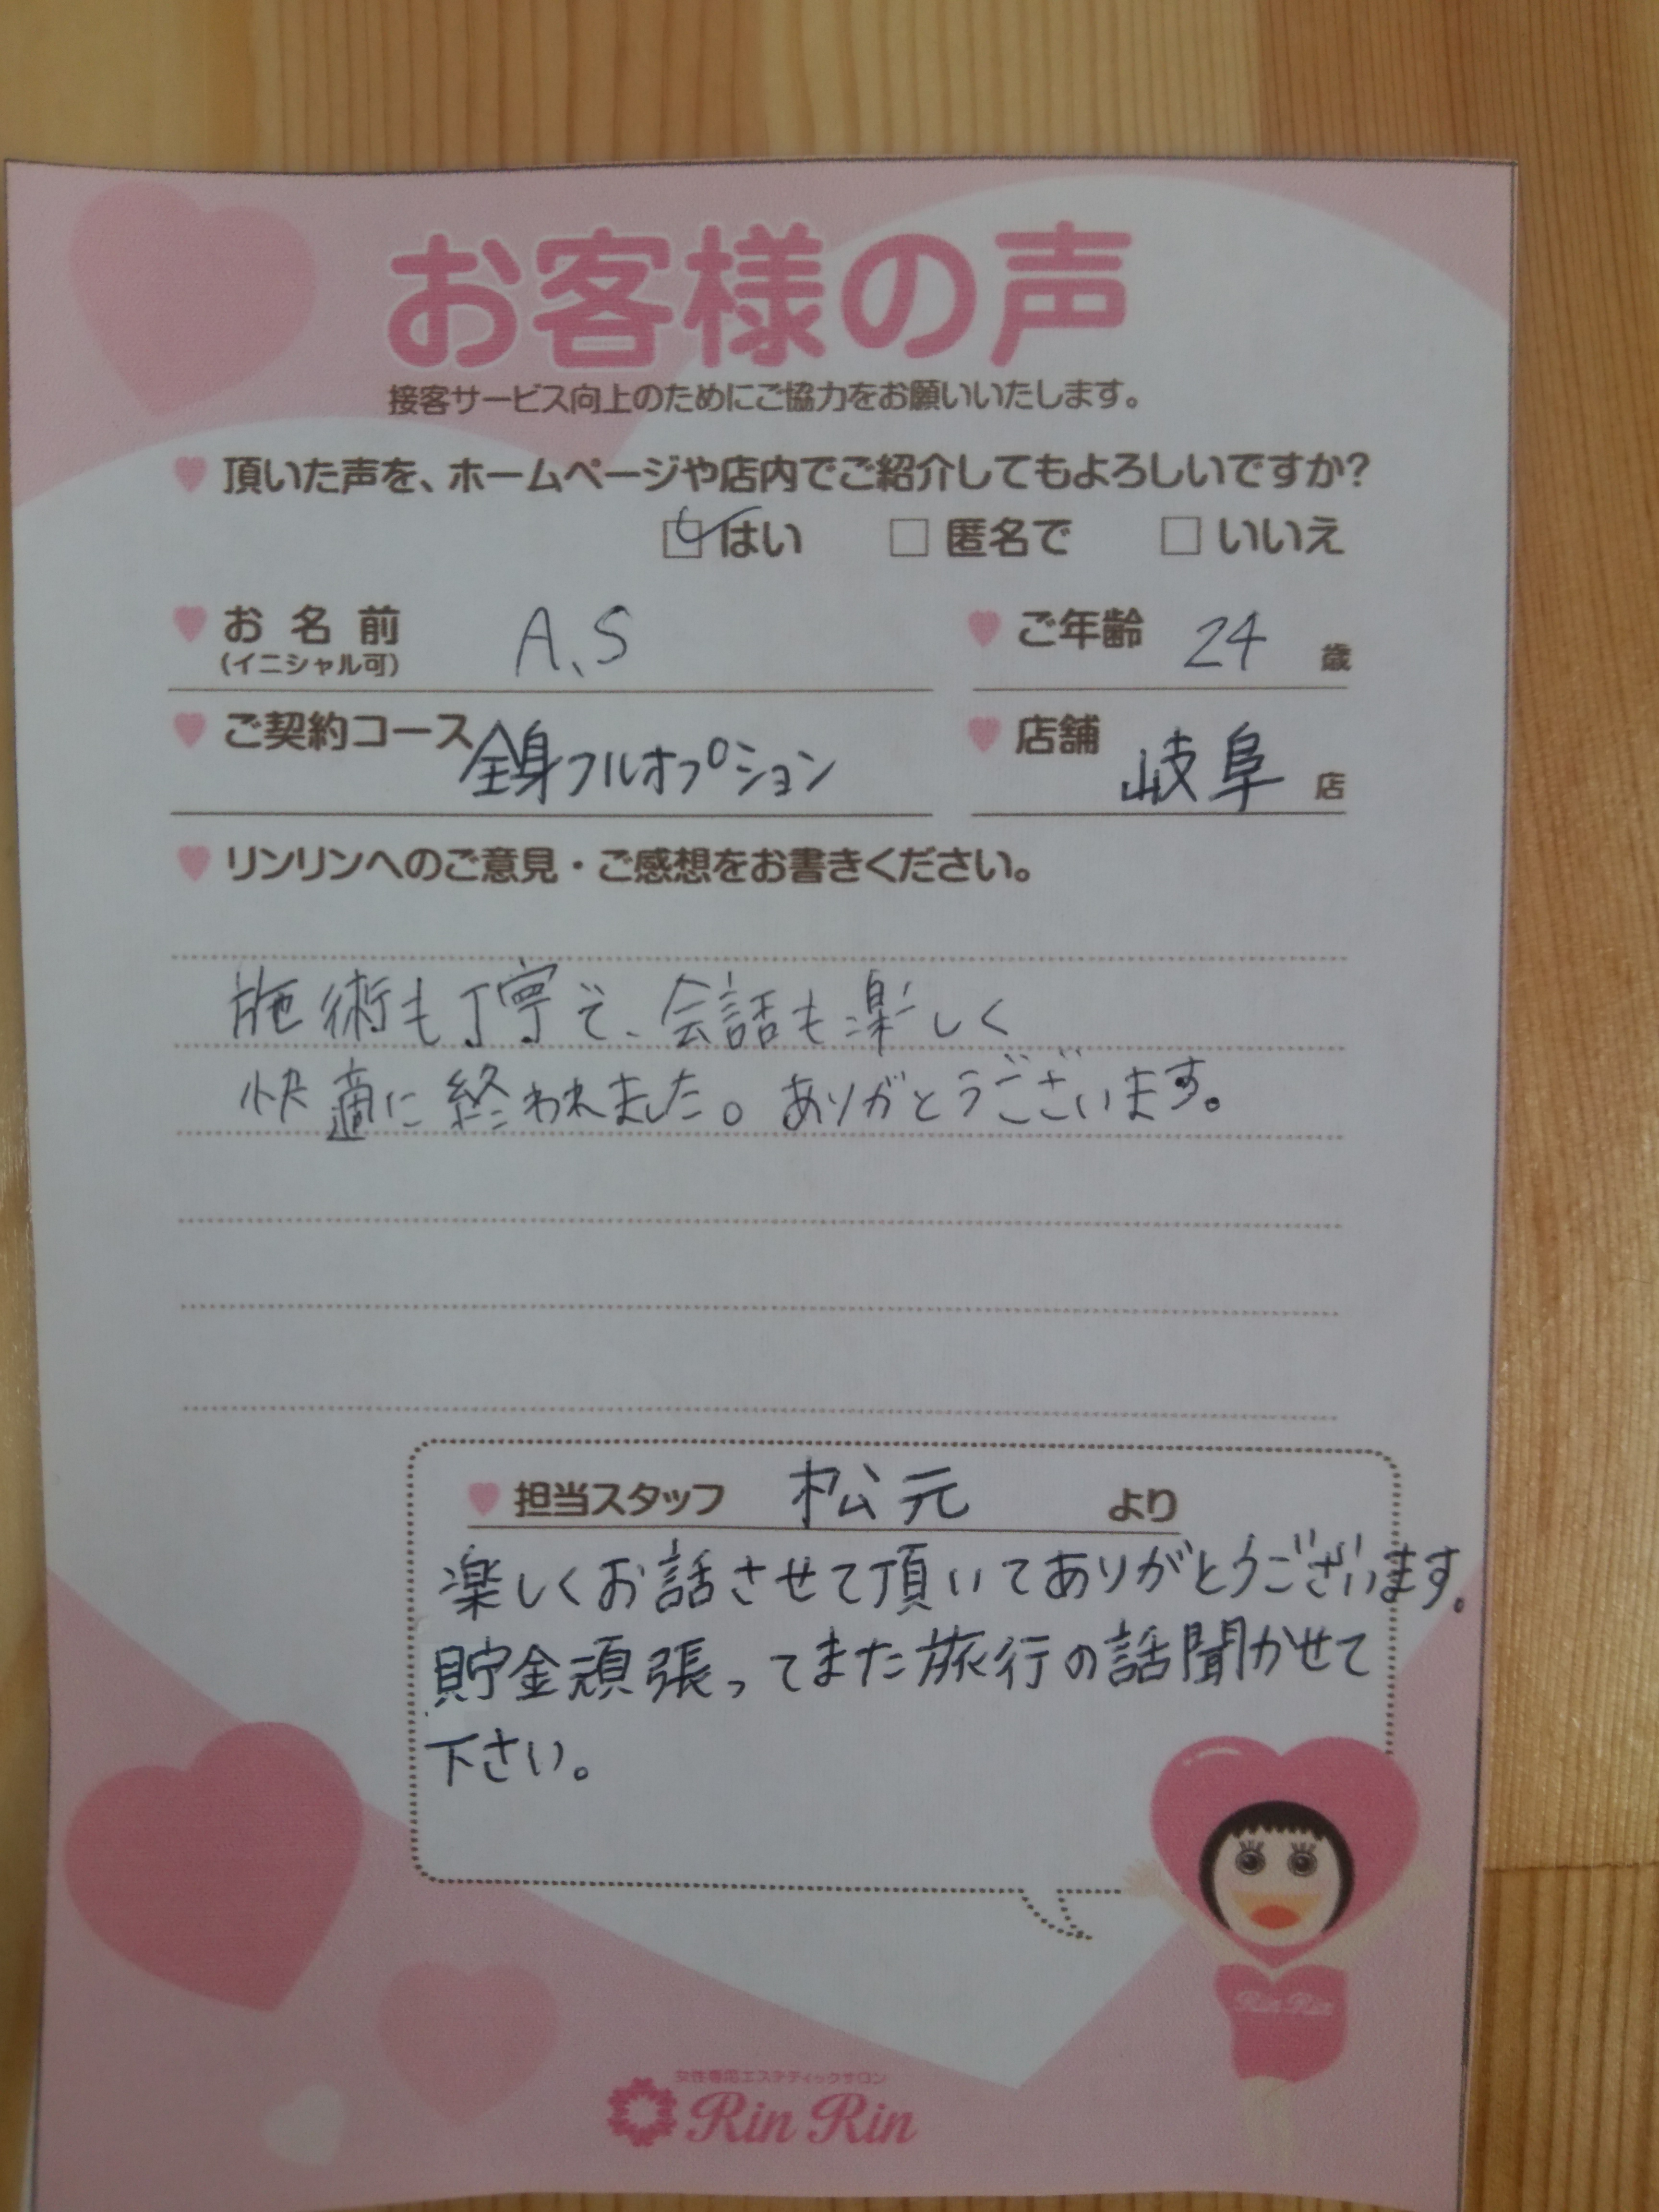 お客様の声
接客サービス向上のためにご協力をお願いいたします。
頂いた声を、ホームページや店内でご紹介してもよろしいですか?
はい 匿名で いいえ
お名前 A、S ご年齢 24 歳
(イニシャル可)
ご契約コース 全身フルオプション 店舗 岐阜 店
リンリンへのご意見・ご感想をお書きください。
施術も丁寧で、会話も楽しく
快適に終われました。ありがとうございます。
担当スタッフ 松元 より
楽しくお話させて頂いてありがとうございます。
貯金頑張ってまた旅行の話聞かせて
下さい。
Rin Rin
女性専用エステティックサロン
Rin Rin